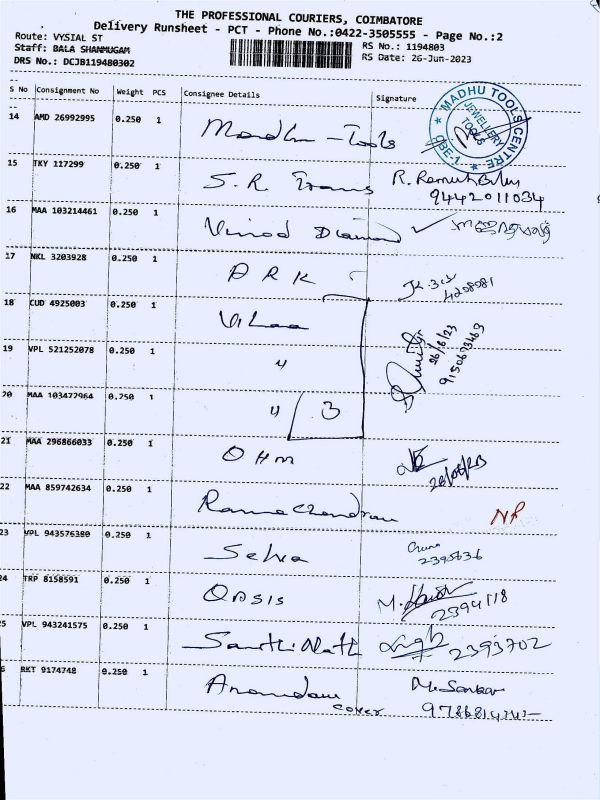 THE PROFESSIONAL COURIERS, COIMBATORE
Delivery Runsheet - PCT - Phone No.:0422-3505555 - Page No.:2
Route: VYSIAL ST
Staff: BALA SHANMUGAM
DRS No.: DCJB119480302
RS No.: 1194803
RS Date: 26-Jun-2023
S No Consignment No Weight PCS Consignee Details Signature
14 AMD 26992995 0.250 1 Madhu-Tools
MADHU TOOLS CENTRE
JEWELLERY TOOLS
CBE-1
15 TKY 117299 0.250 1 S.R. 
9442011034
16 MAA 103214461 0.250 1 Vinod Diamond
17 NKL 3203928 0.250 1 A R K
18 CUD 4925003 0.250 1
19 VPL 521252078 0.250 1 "
26/6/23
20 MAA 103472964 0.250 1 " 3
21 MAA 296866033 0.250 1 OHM
26/06/23
22 MAA 859742634 0.250 1 Ramachandran NR
23 VPL 943576380 0.250 1 Selva
2395636
24 TRP 8158591 0.250 1 OASIS
2394118
25 VPL 943241575 0.250 1 Santhi Nath 2393702
RKT 9174748 0.250 1 Anandam M. Sankar
cover